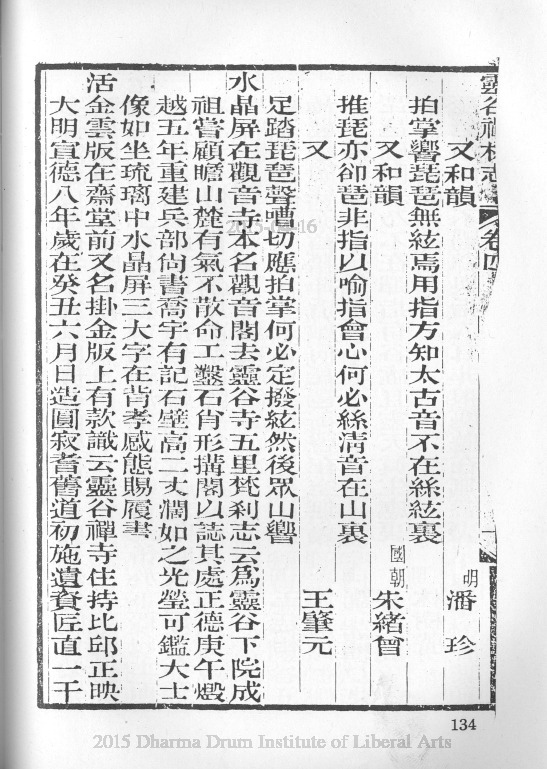 靈谷禪林志
卷四
又和韻
明
潘珍
拍掌響琵琶無絃焉用指方知太古音不在絲絃裏
又和韻
國朝
朱緒曾
推琵亦卻琶非指以喻指會心何必絲淸音在山裏
又
王肇元
足踏琵琶聲嘈切應拍掌何必定撥絃然後眾山響
水晶屏在觀音寺本名觀音閣去靈谷寺五里梵刹志云爲靈谷下院成
祖嘗顧瞻山麓有氣不散命工鑿石肖形搆閣以誌其處正德庚午燬
越五年重建兵部尙書喬宇有記石壁高二丈濶如之光瑩可鑑大士
像如坐琉璃中水晶屏三大字在昔孝感熊賜履書
活金雲版在齋堂前又名掛金版上有款識云靈谷禪寺住持比邱正映
大明宣德八年歲在癸丑六月日造圓寂耆舊道初施遺資匠直一千
134
2015 Dharma Drum Institute of Liberal Arts